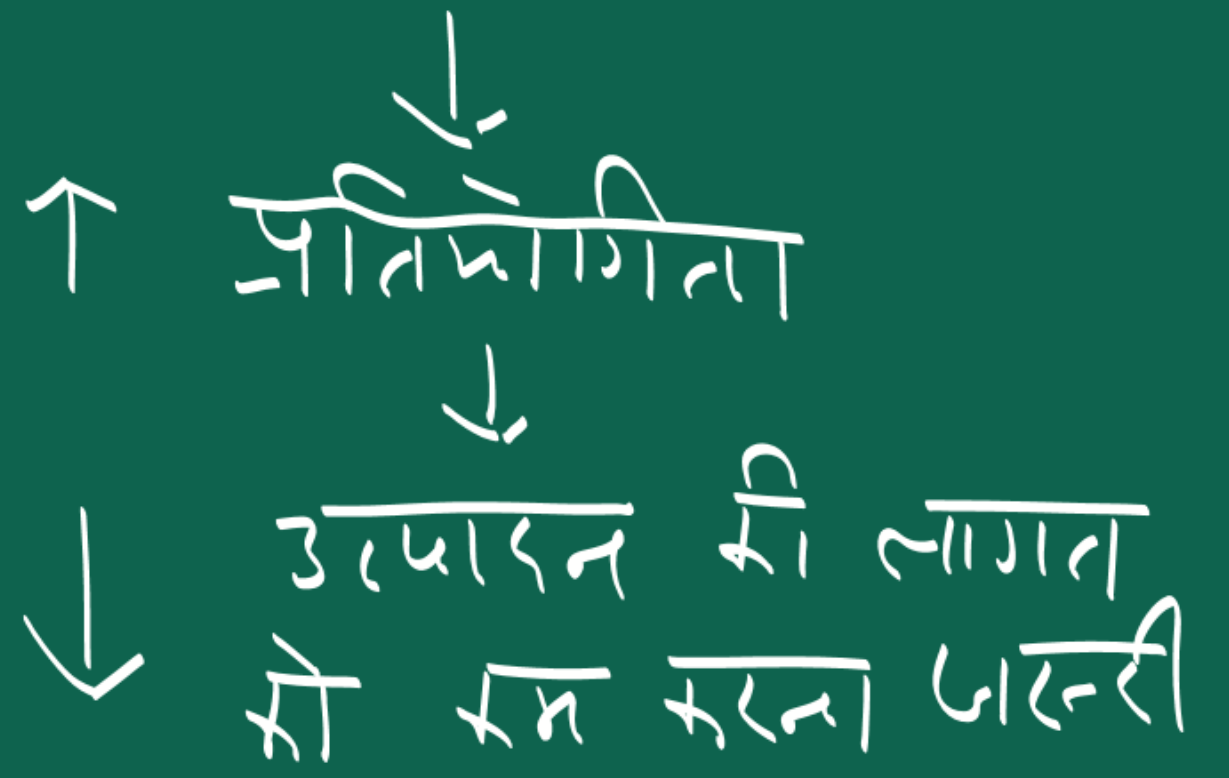 ↓
↑ प्रतियोगिता
↓
उत्पादन की लागत
↓ को कम करना जरूरी